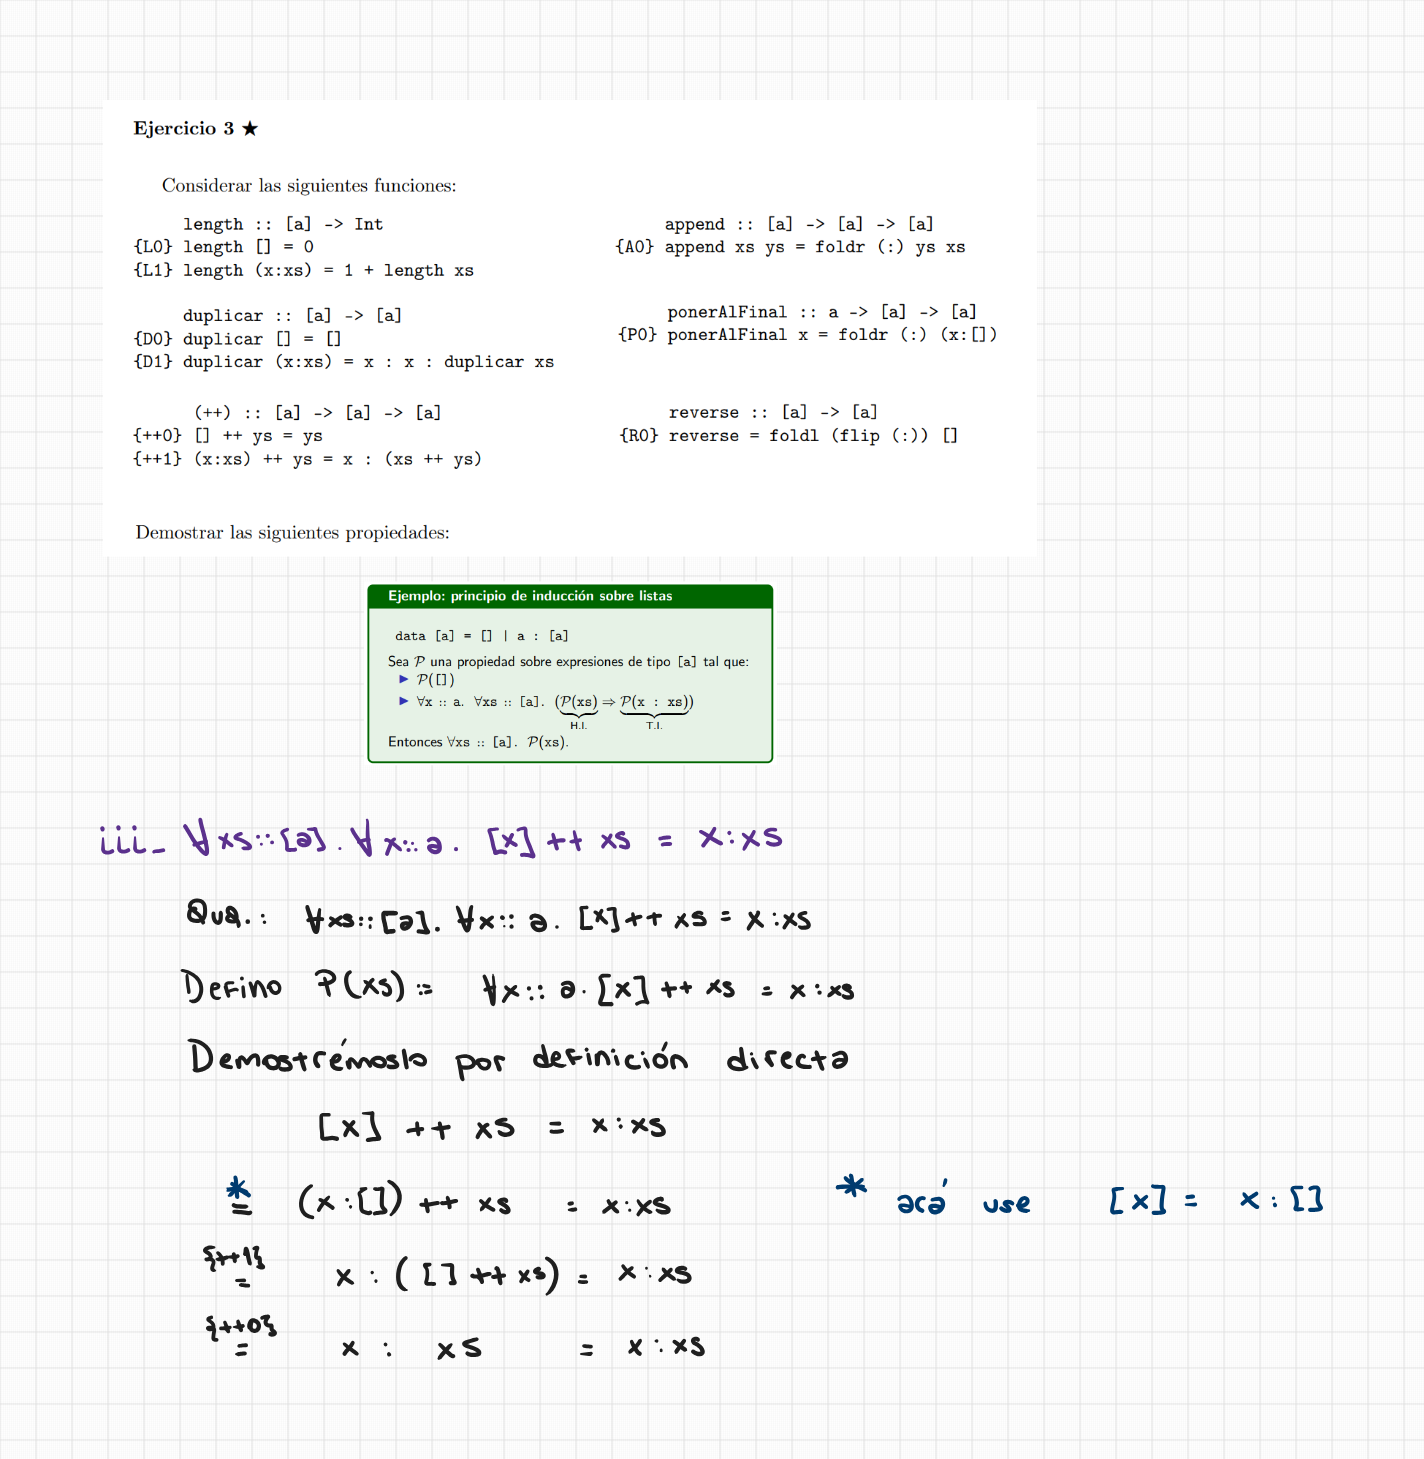 Ejercicio 3 ★
Considerar las siguientes funciones:
length :: [a] -> Int
{L0} length [] = 0
{L1} length (x:xs) = 1 + length xs
append :: [a] -> [a] -> [a]
{A0} append xs ys = foldr (:) ys xs
duplicar :: [a] -> [a]
{D0} duplicar [] = []
{D1} duplicar (x:xs) = x : x : duplicar xs
ponerAlFinal :: a -> [a] -> [a]
{P0} ponerAlFinal x = foldr (:) (x:[])
(++) :: [a] -> [a] -> [a]
{++0} [] ++ ys = ys
{++1} (x:xs) ++ ys = x : (xs ++ ys)
reverse :: [a] -> [a]
{R0} reverse = foldl (flip (:)) []
Demostrar las siguientes propiedades:
Ejemplo: principio de inducción sobre listas
data [a] = [] | a : [a]
Sea P una propiedad sobre expresiones de tipo [a] tal que:
▶ P([])
▶ ∀x :: a. ∀xs :: [a]. (P(xs) ⇒ P(x : xs))
H.I. T.I.
Entonces ∀xs :: [a]. P(xs).
iii_ ∀xs::[a]. ∀x::a. [x] ++ xs = x:xs
Qvq.: ∀xs::[a]. ∀x::a. [x]++ xs = x:xs
Defino P(xs) := ∀x::a. [x] ++ xs = x:xs
Demostrémoslo por definición directa
[x] ++ xs = x:xs
* = (x:[]) ++ xs = x:xs * acá use [x] = x:[]
{++1} = x : ([] ++ xs) = x:xs
{++0} = x : xs = x:xs